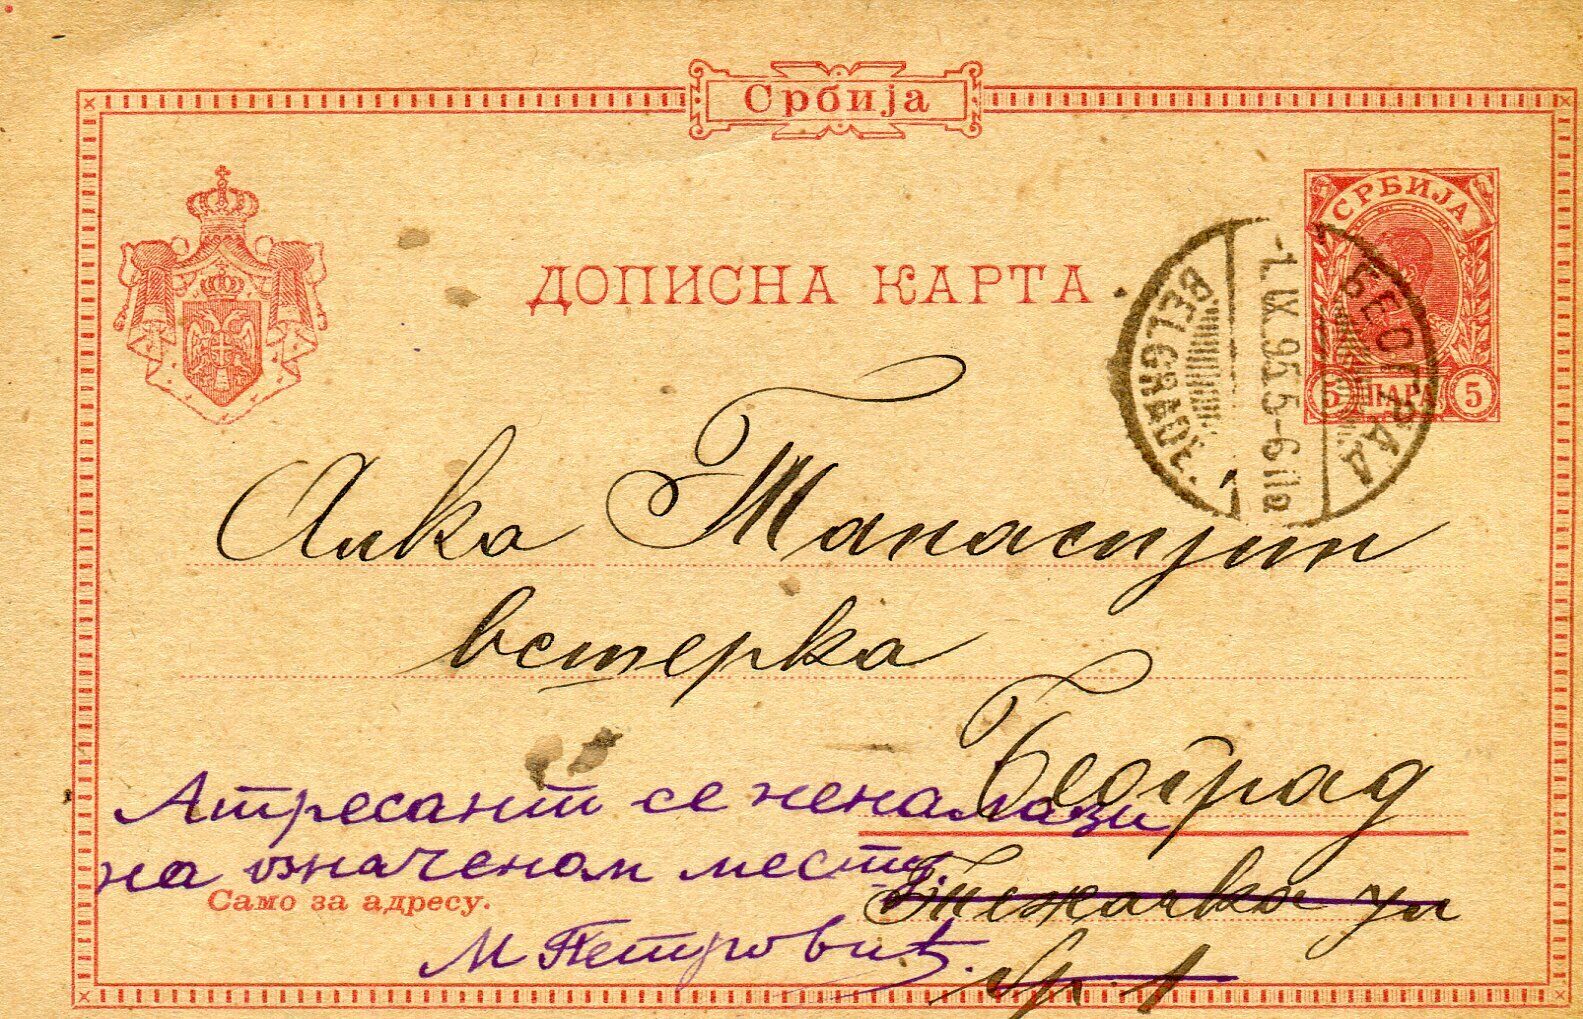 Србија
ДОПИСНА КАРТА
СРБИЈА
5 ПАРА 5
БЕОГРАД
1.IX.95.5-6
BELGRADE
Алка
вештерка
Београд
Атресант се неналази
на означеном месту.
Само за адресу.
Тежачка ул
М Петровић.
бр. 1